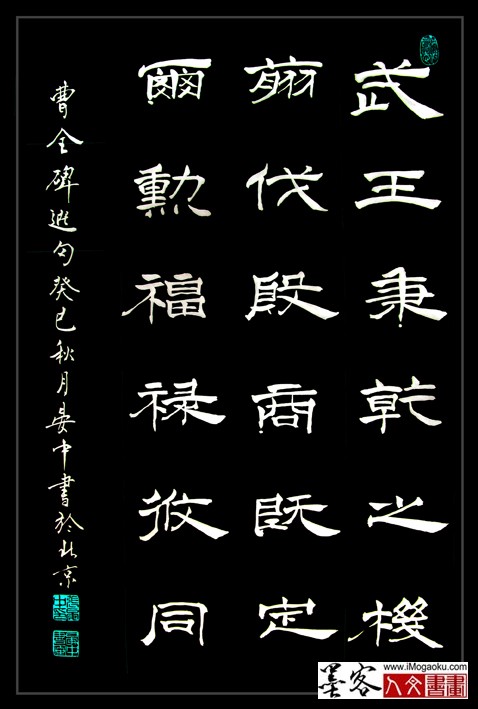 武王秉乾之機
翦伐殷商既定
爾勳福禄攸同
曹全碑選句癸巳秋月晏中書於北京
www.iMogaoku.com
墨客人文書畫